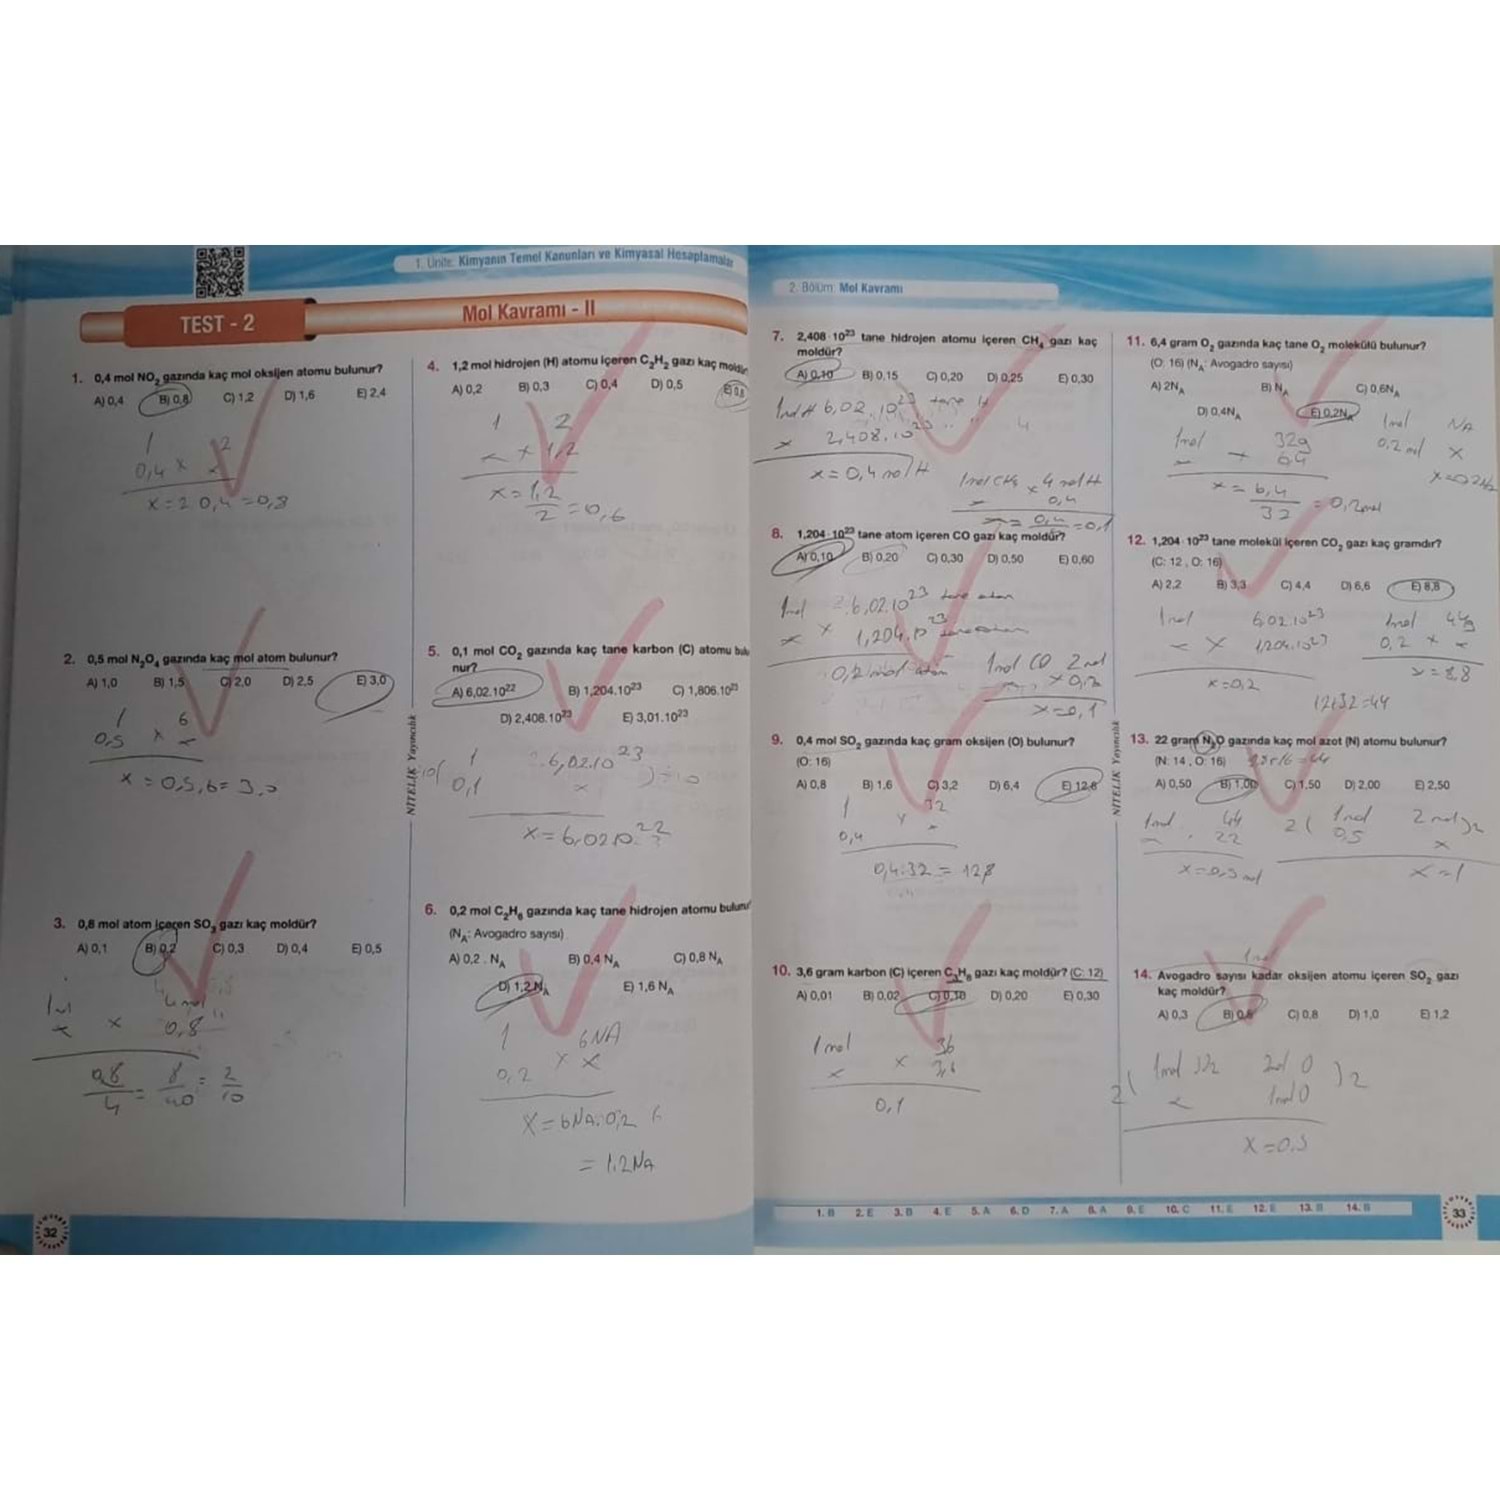 1. Ünite: Kimyanın Temel Kanunları ve Kimyasal Hesaplamalar
TEST - 2
Mol Kavramı - II
1. 0,4 mol NO₂ gazında kaç mol oksijen atomu bulunur?
A) 0,4 B) 0,8 C) 1,2 D) 1,6 E) 2,4
1 2
0,4 x x
x = 2 0,4 = 0,8
2. 0,5 mol N₂O₄ gazında kaç mol atom bulunur?
A) 1,0 B) 1,5 C) 2,0 D) 2,5 E) 3,0
1 6
0,5 x x
x = 0,5,6 = 3,0
3. 0,8 mol atom içeren SO₃ gazı kaç moldür?
A) 0,1 B) 0,2 C) 0,3 D) 0,4 E) 0,5
1 mol 4 mol
x x 0,8 "
0,8/4 = 8/40 = 2/10
4. 1,2 mol hidrojen (H) atomu içeren C₂H₂ gazı kaç moldür
A) 0,2 B) 0,3 C) 0,4 D) 0,5 E) 0,6
1 2
x x 1,2
x = 1,2/2 = 0,6
5. 0,1 mol CO₂ gazında kaç tane karbon (C) atomu bulu-
nur?
A) 6,02.10²² B) 1,204.10²³ C) 1,806.10²³
D) 2,408.10²³ E) 3,01.10²³
1 6,02.10²³
0,1 x
x = 6,02.10²²
6. 0,2 mol C₂H₆ gazında kaç tane hidrojen atomu bulunur
(N_A: Avogadro sayısı)
A) 0,2 . N_A B) 0,4 N_A C) 0,8 N_A
D) 1,2 N_A E) 1,6 N_A
1 6NA
0,2 x x
x = 6NA.0,2
= 1,2NA
NİTELİK Yayıncılık
32
2. Bölüm: Mol Kavramı
7. 2,408·10²³ tane hidrojen atomu içeren CH₄ gazı kaç
moldür?
A) 0,10 B) 0,15 C) 0,20 D) 0,25 E) 0,30
1 mol H 6,02.10²³ tane H
x 2,408.10²³ " "
x = 0,4 mol H
1 mol CH₄ x 4 mol H
x 0,4
x = 0,4/4 = 0,1
8. 1,204·10²³ tane atom içeren CO gazı kaç moldür?
A) 0,10 B) 0,20 C) 0,30 D) 0,50 E) 0,60
1 mol 6,02.10²³ tane atom
x x 1,204.10²³ tane atom
0,2 mol atom
1 mol CO 2 mol
x x 0,2
x = 0,1
9. 0,4 mol SO₂ gazında kaç gram oksijen (O) bulunur?
(O: 16)
A) 0,8 B) 1,6 C) 3,2 D) 6,4 E) 12,8
1 32
0,4 x x
0,4.32 = 128
10. 3,6 gram karbon (C) içeren C₃H₈ gazı kaç moldür? (C: 12)
A) 0,01 B) 0,02 C) 0,10 D) 0,20 E) 0,30
1 mol 36
x x 3,6
0,1
NİTELİK Yayıncılık
11. 6,4 gram O₂ gazında kaç tane O₂ molekülü bulunur?
(O: 16) (N_A: Avogadro sayısı)
A) 2N_A B) N_A C) 0,6N_A
D) 0,4N_A E) 0,2N_A
1 mol 32g
x 6,4
x = 6,4/32 = 0,2 mol
1 mol NA
0,2 mol x
x = 0,2NA
12. 1,204·10²³ tane molekül içeren CO₂ gazı kaç gramdır?
(C: 12 , O: 16)
A) 2,2 B) 3,3 C) 4,4 D) 6,6 E) 8,8
1 mol 6,02.10²³
x x 1,204.10²³
x = 0,2
1 mol 44g
0,2 x x
x = 8,8
12+32=44
13. 22 gram N₂O gazında kaç mol azot (N) atomu bulunur?
(N: 14 , O: 16)
A) 0,50 B) 1,00 C) 1,50 D) 2,00 E) 2,50
1 mol 44
x 22
x = 0,5 mol
2( 1 mol 2 mol )2
0,5 x
x = 1
14. Avogadro sayısı kadar oksijen atomu içeren SO₂ gazı
kaç moldür?
A) 0,3 B) 0,5 C) 0,8 D) 1,0 E) 1,2
1 mol 2 mol O
x 1 mol O
x = 0,5
1. B 2. E 3. B 4. E 5. A 6. D 7. A 8. A 9. E 10. C 11. E 12. E 13. B 14. B
33